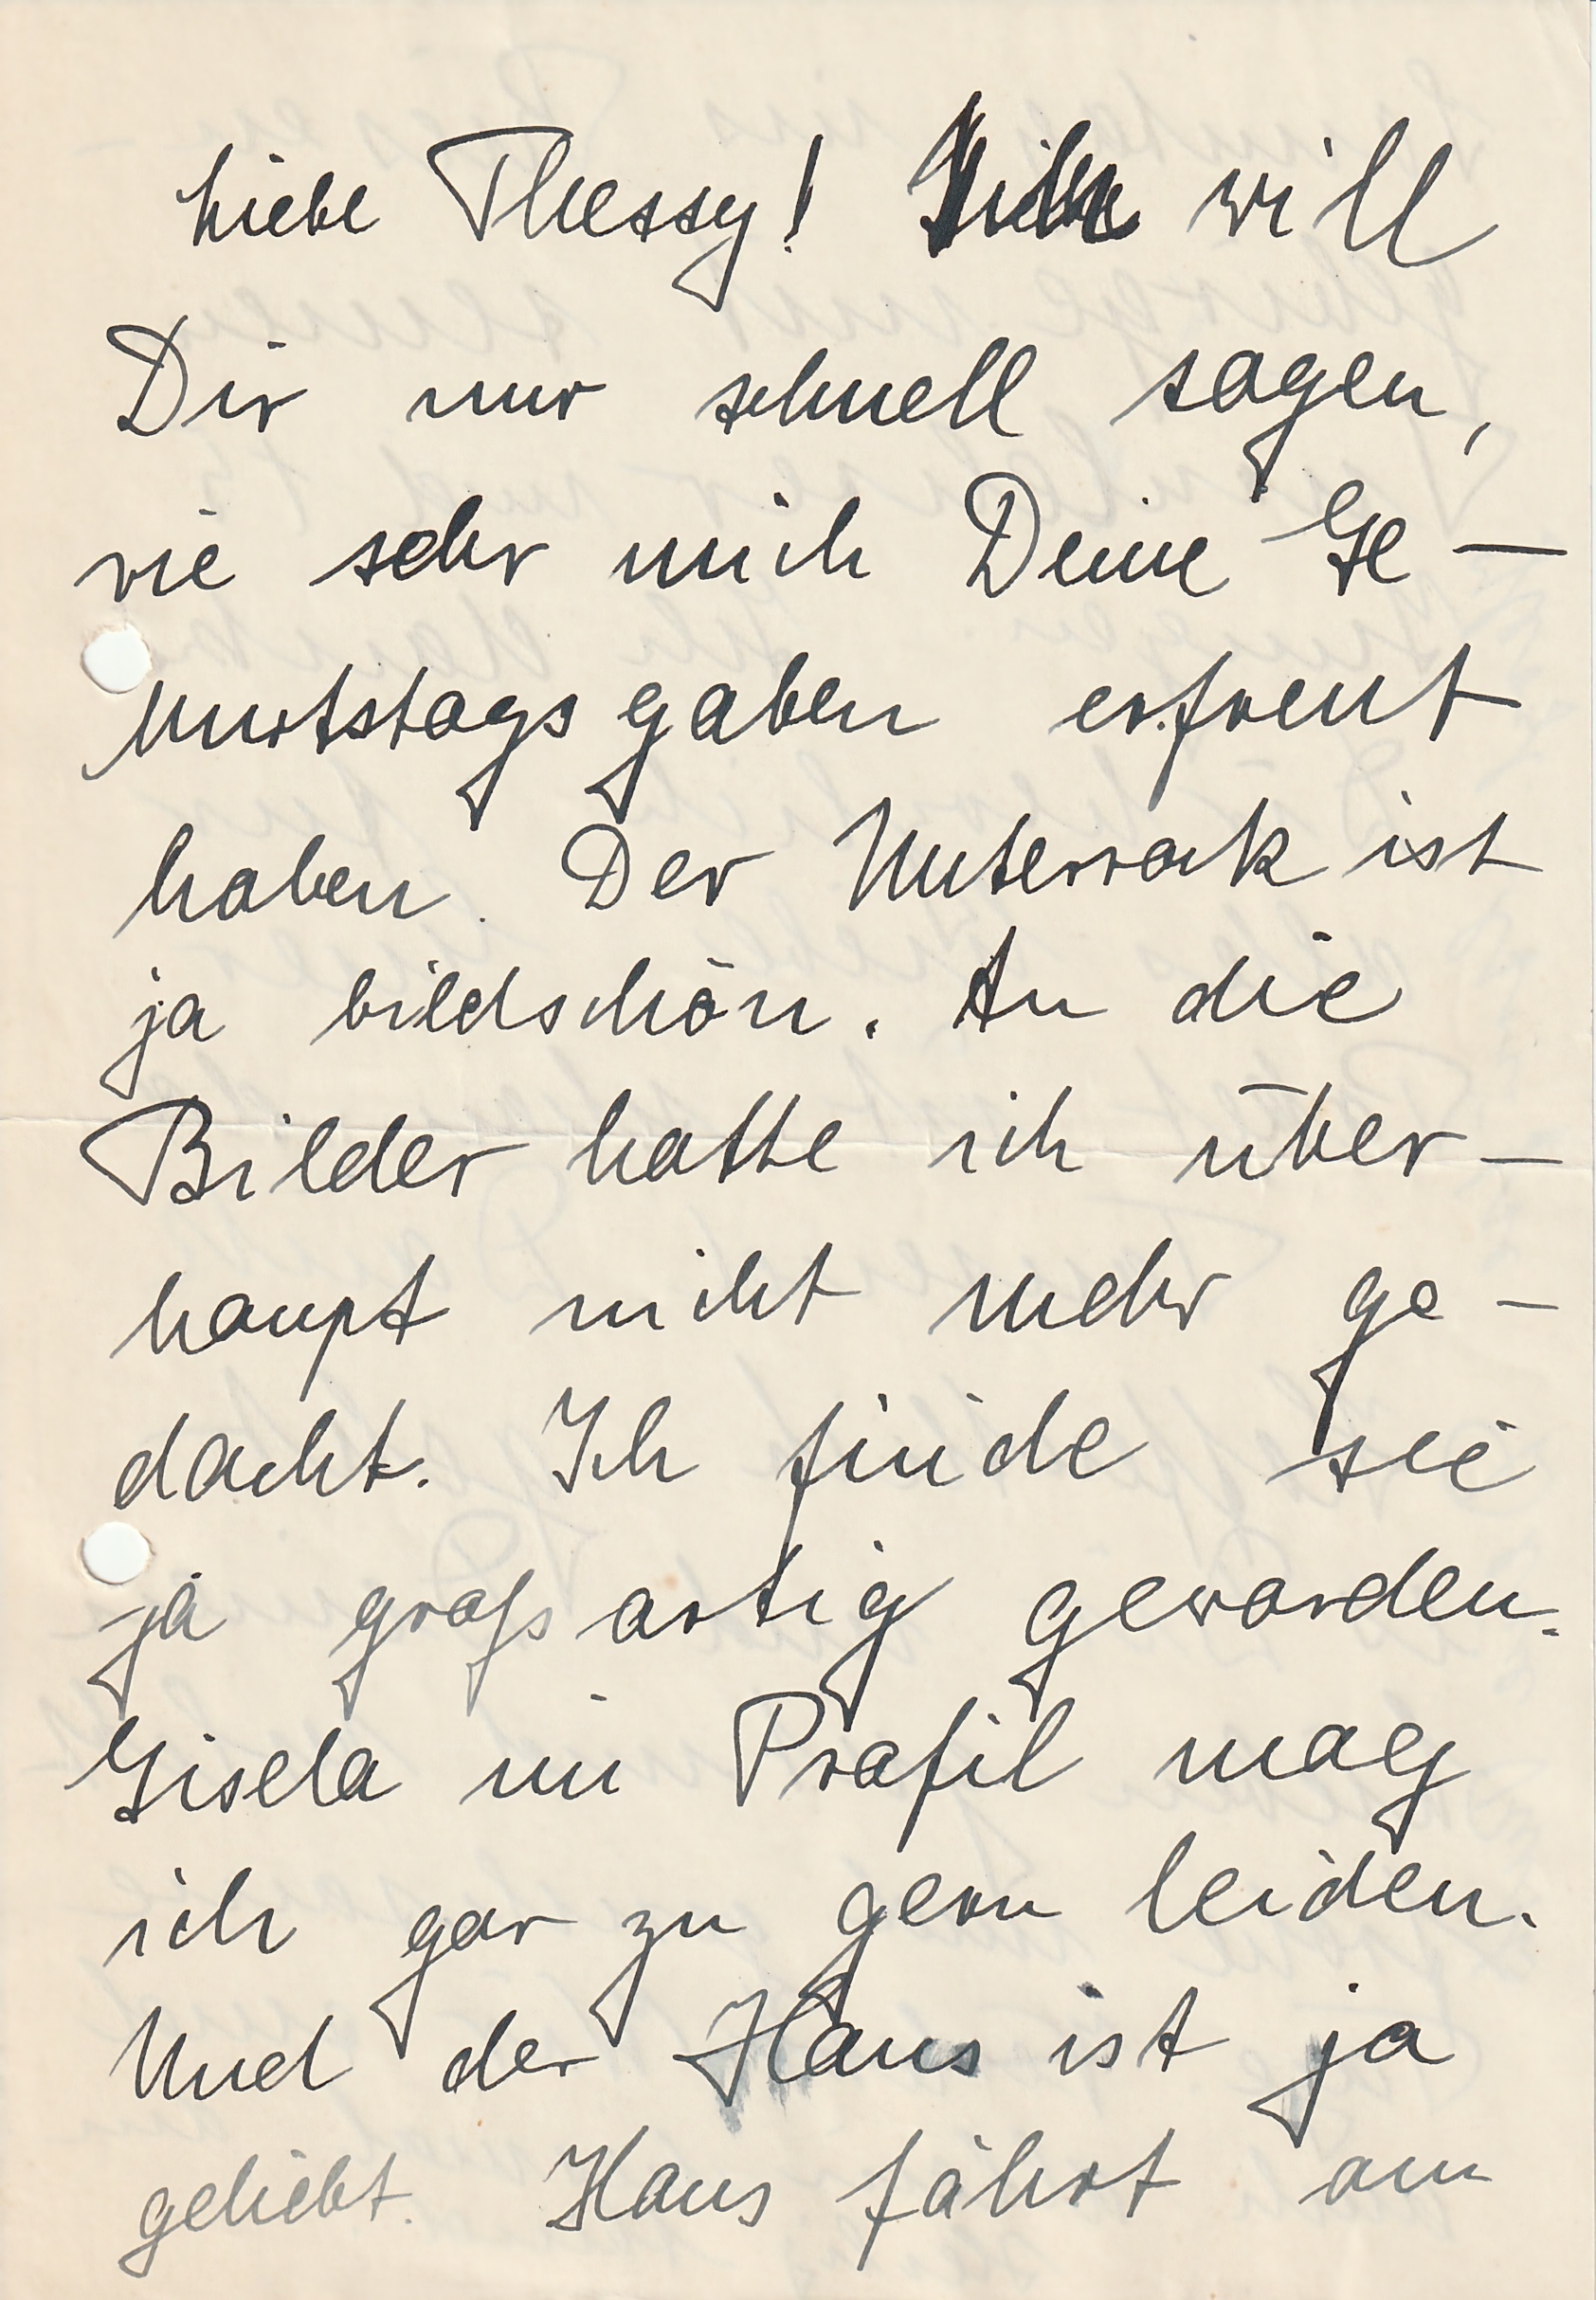 Liebe Thessy! Ich will
Dir nur schnell sagen,
wie sehr mich Deine Ge-
burtstagsgaben erfreut
haben. Der Unterrock ist
ja bildschön. An die
Bilder hatte ich über-
haupt nicht mehr ge-
dacht. Ich finde sie
ja großartig geworden.
Gisela im Profil mag
ich gar zu gern leiden.
Und der Hans ist ja
geliebt. Hans fährt am